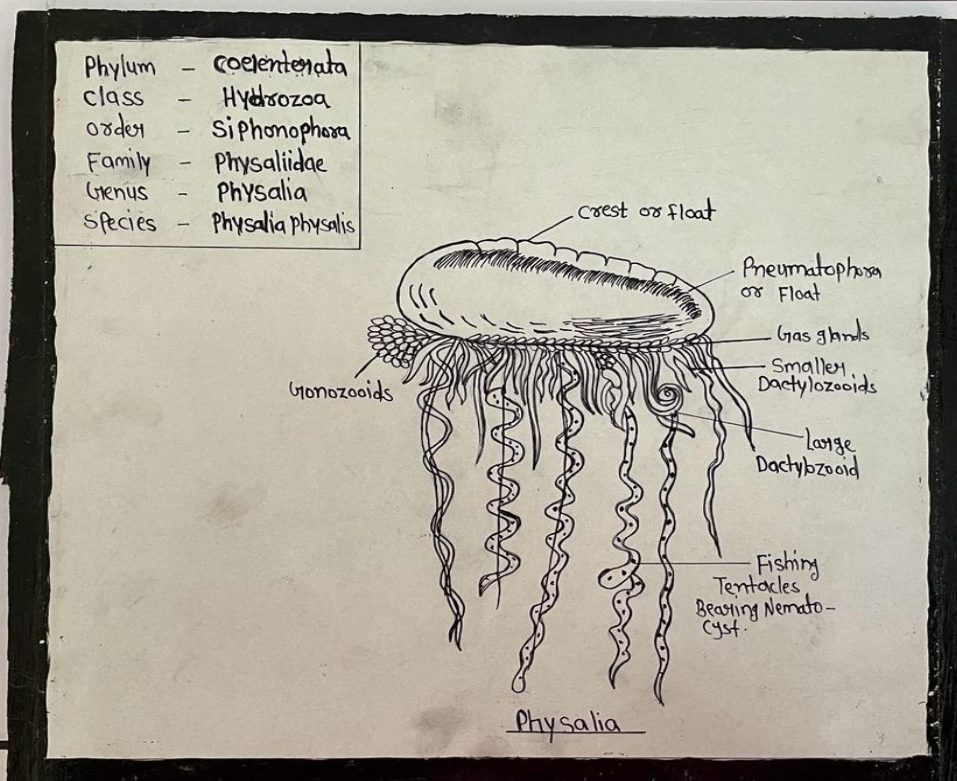 Phylum - Coelenterata
Class - Hydrozoa
Order - Siphonophora
Family - Physaliidae
Genus - Physalia
Species - Physalia Physalis
Crest or Float
Pneumatophora
or Float
Gas glands
Smaller
Dactylozooids
Gonozooids
Large
Dactylozooid
Fishing
Tentacles
Bearing Nemato-
Cyst.
Physalia